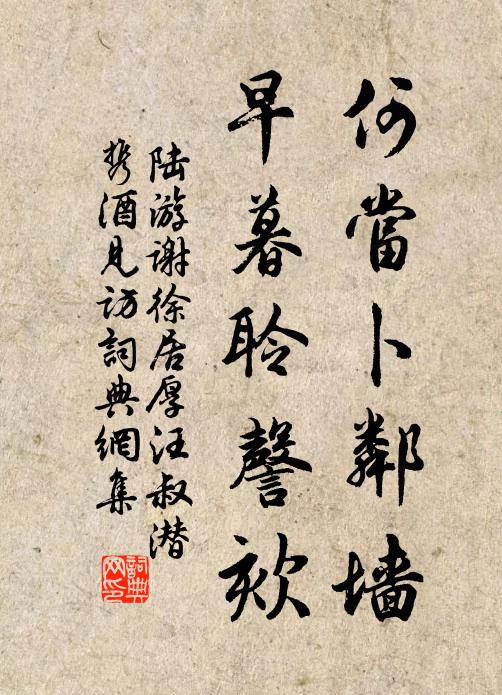 何當卜鄰墻
早暮聆謦欬
陆游谢徐居厚汪叔潜
携酒見訪詞典網集
詞典
网印